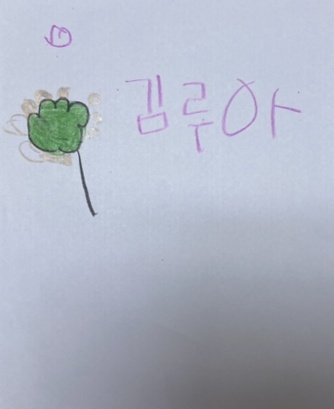 김루아